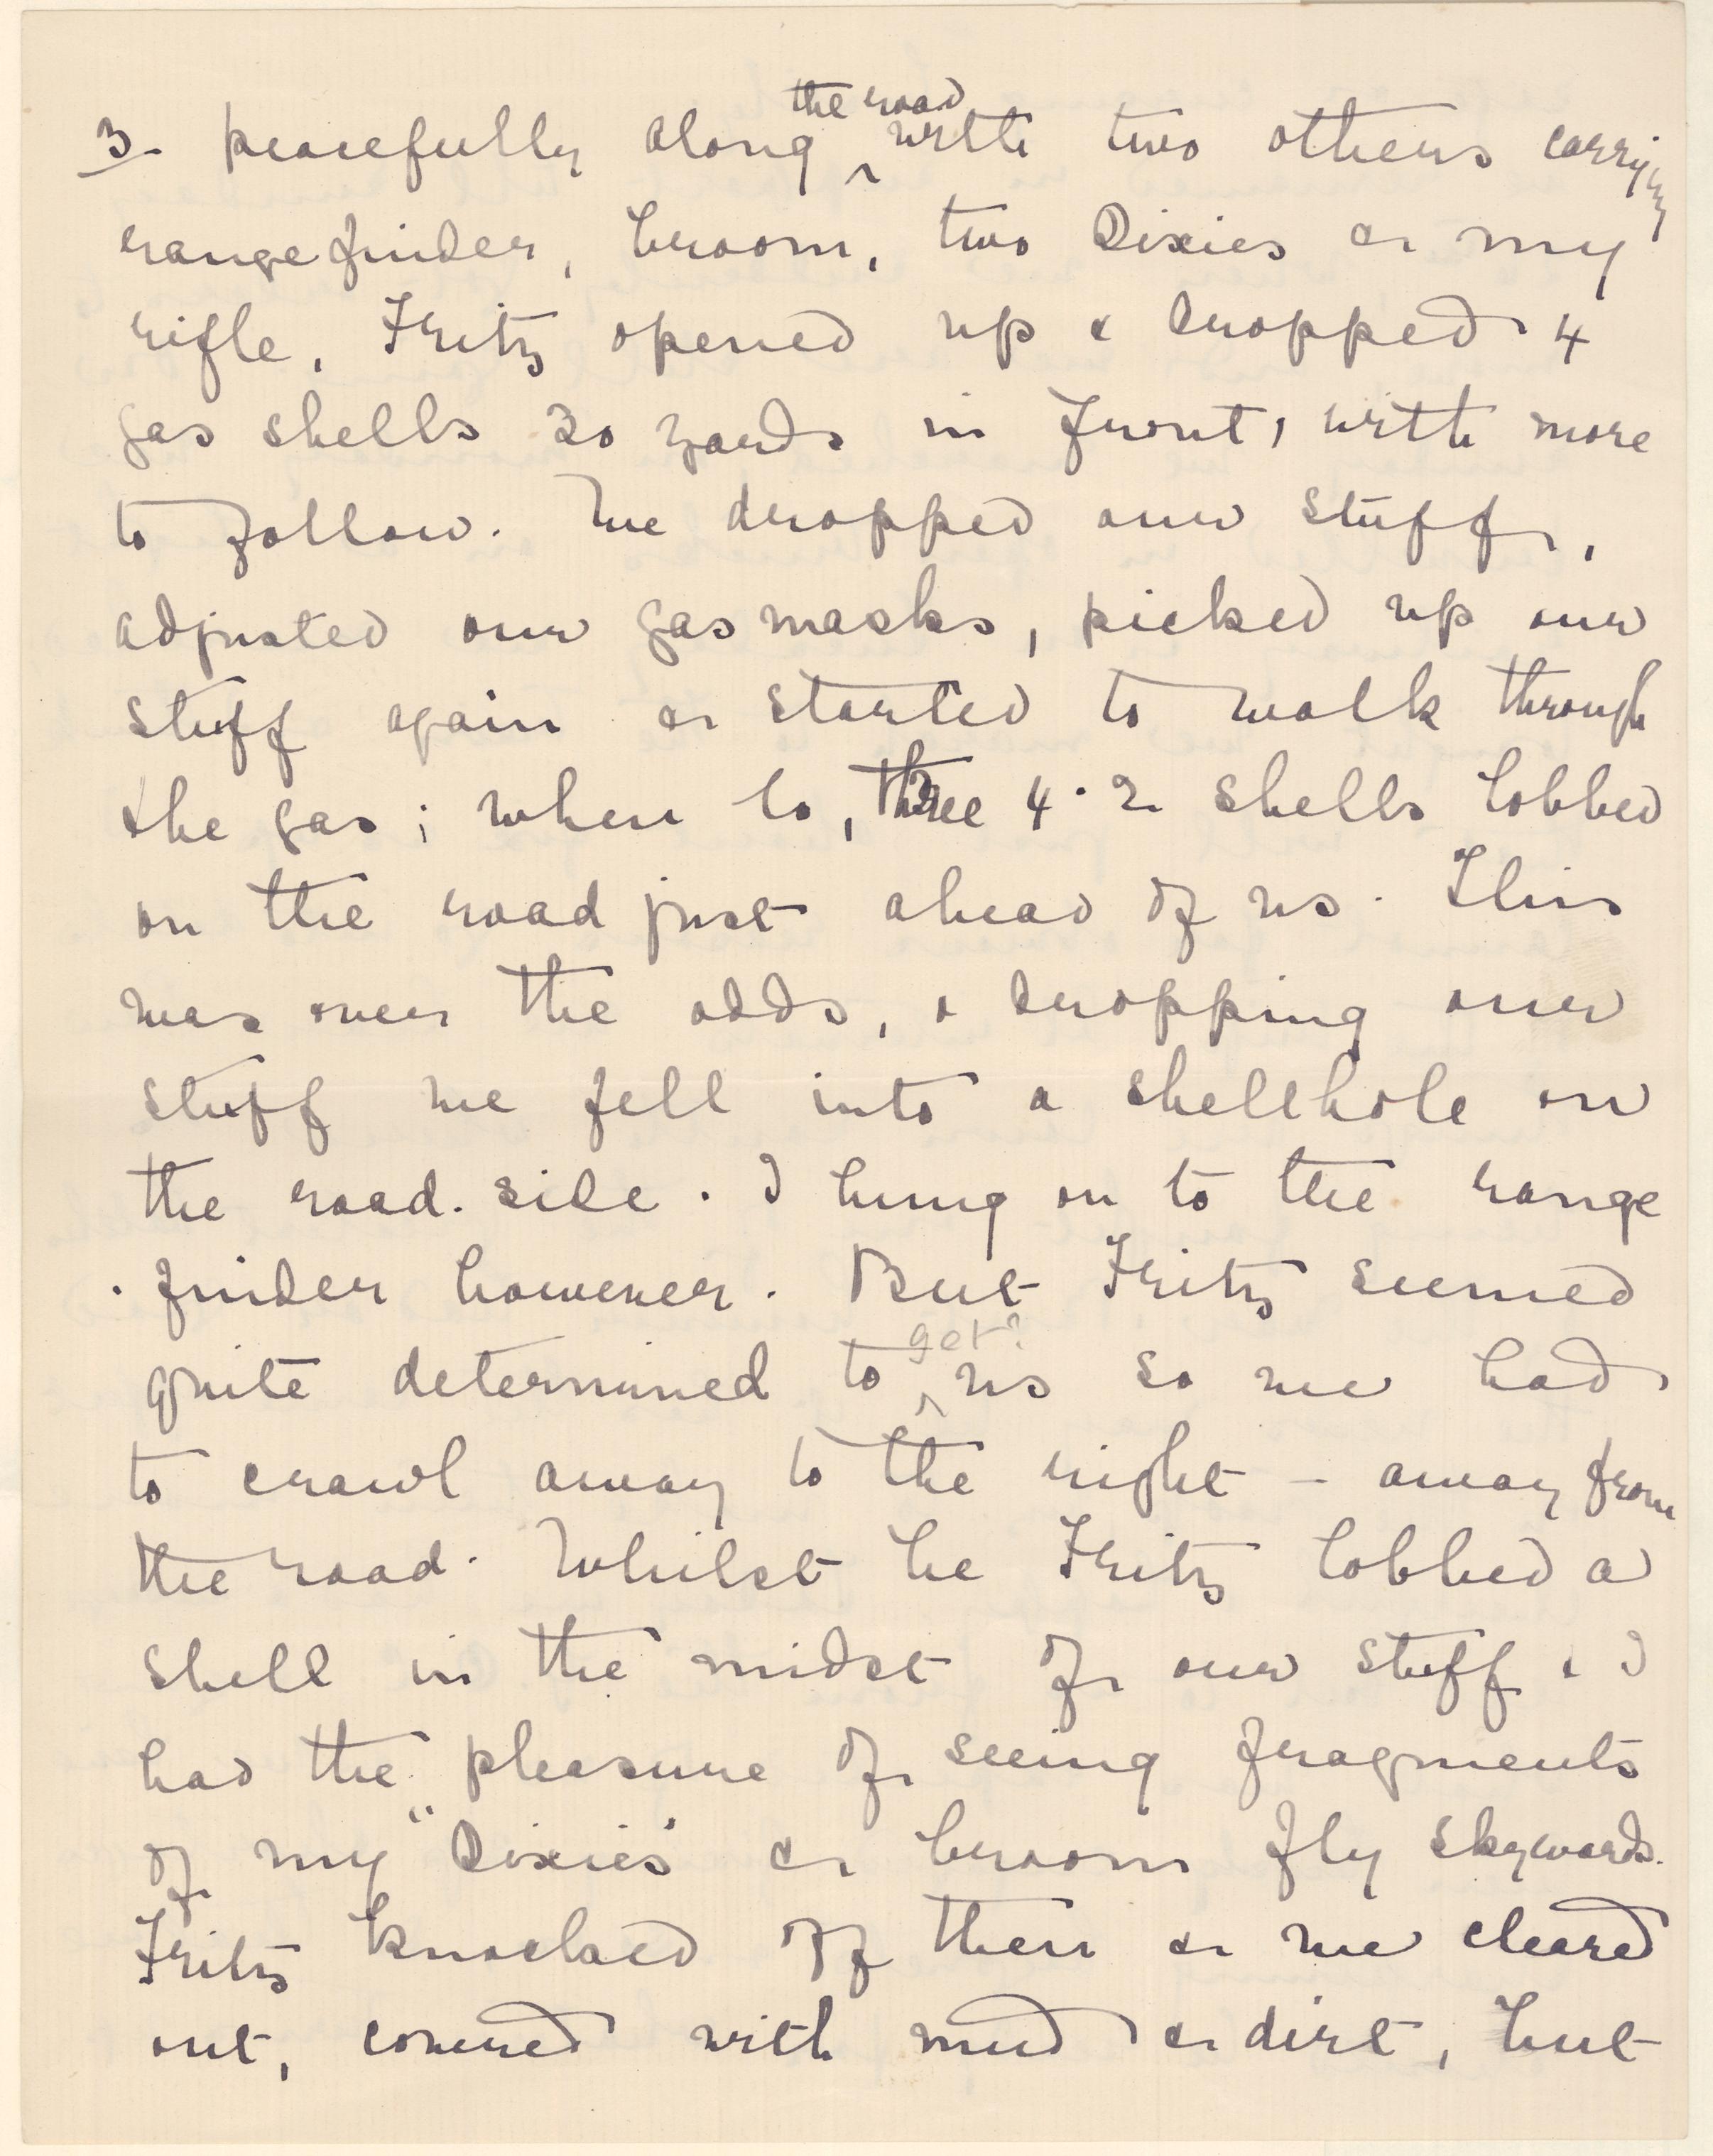 3. peacefully along the road with two others carrying
rangefinder, broom, two Dixies & my
rifle, Fritz opened up & dropped 4
gas shells 20 yards in front, with more
to follow. We dropped our stuff,
adjusted our gas masks, picked up our
stuff again & started to walk through
the gas; when lo, three 4.2 shells lobbed
on the road just ahead of us. This
was over the odds, & dropping our
stuff we fell into a shellhole on
the road. side. I hung on to the range
. finder however. But Fritz seemed
quite determined to get? us so we had
to crawl away to the right - away from
the road. Whilst he Fritz lobbed a
shell in the midst of our stuff & I
had the pleasure of seeing fragments
of my "Dixies" & broom fly skywards.
Fritz knocked off then & we cleared
out, covered with mud & dirt, but